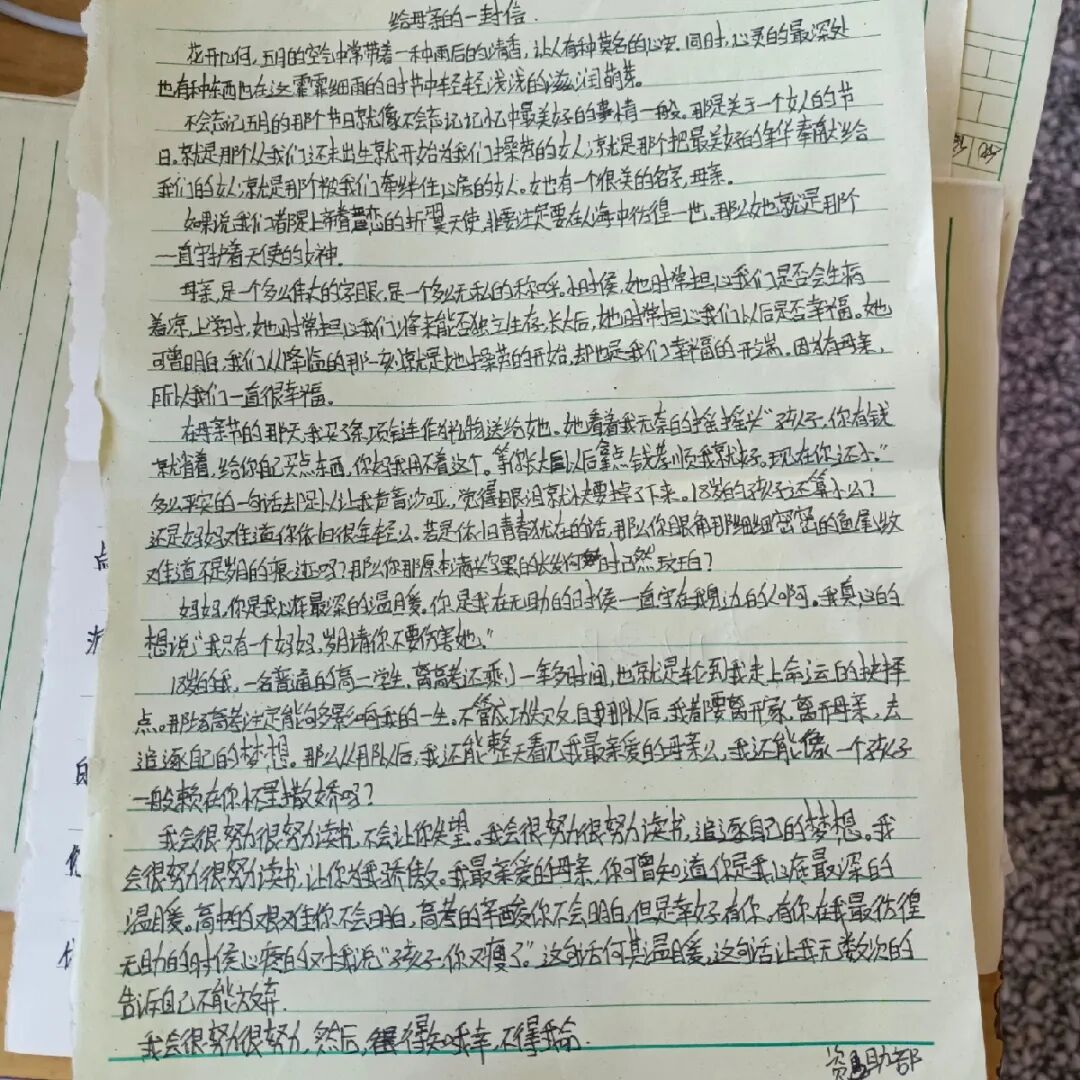 给母亲的一封信.
花开几何,五月的空气中常带着一种雨后的清香,让人有种莫名的心安.同时,心灵的最深处
也有种东西也在这霏霏细雨的时节中轻轻浅浅的滋润萌芽。
不会忘记五月的那个节日就像不会忘记记忆中最美好的事情一般。那是关于一个女人的节
日。就是那个从我们还未出生就开始为我们操劳的女人;就是那个把最美好的年华奉献给
我们的女人;就是那个被我们牵绊住心房的女人。她也有一个很美的名字,母亲。
如果说我们都是上帝眷恋的折翼天使,非要注定要在人海中彷徨一世。那么她就是那个
一直守护着天使的女神.
母亲,是一个多么伟大的字眼,是一个多么无私的称呼。小时候,她时常担心我们是否会生病
着凉,上学时,她时常担心我们将来能否独立生存,长大后,她时常担心我们以后是否幸福。她
可曾明白,我们从降临的那一刻就是她操劳的开始,却也是我们幸福的开端。因为有母亲,
所以我们一直很幸福。
在母亲节的那天,我买了条项链作为礼物送给她。她看着我无奈的摇摇头“孩子,你有钱
就省着,给你自己买点东西,你妈我用不着这个。等你长大以后拿点钱孝顺我就好。现在你还小.”
多么平实的一句话却足以让我声音沙哑,觉得眼泪就快要掉了下来。18岁的孩子还算小么?
还是妈妈难道你依旧很年轻么。若是依旧青春犹在的话,那么你眼角那细细密密的鱼尾纹
难道不是岁月的痕迹吗?那么你那原本满头乌黑的长发何时已然斑白?
妈妈,你是我心底最深的温暖。你是我在无助的时候一直守在我身边的人啊。我真心的
想说“我只有一个妈妈,岁月请你不要伤害她。”
18岁的我,一名普通的高二学生,离高考还剩下一年多时间,也就是轮到我走上命运的抉择
点。那场高考注定能够影响我的一生。不管成功失败,自那以后,我都要离开家,离开母亲,去
追逐自己的梦想。那么从那以后,我还能整天看见我最亲爱的母亲么,我还能像一个孩子
一般赖在你怀里撒娇吗?
我会很努力很努力读书,不会让你失望。我会很努力很努力读书,追逐自己的梦想。我
会很努力很努力读书,让你为我骄傲。我最亲爱的母亲,你可曾知道你是我心底最深的
温暖。高中的艰难你不会明白,高考的辛酸你不会明白,但是幸好有你,有你在我最彷徨
无助的时候心疼的对我说“孩子,你又瘦了”。这句话何其温暖,这句话让我无数次的
告诉自己不能放弃.
我会很努力很努力,然后,得知我幸,不得我命.
资助部